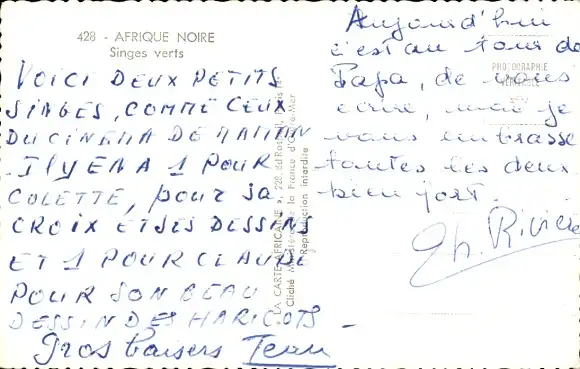 428 - AFRIQUE NOIRE
Singes verts
VOICI DEUX PETITS
SINGES, COMME CEUX
DU CINEMA DE MAMAN
IL Y EN A 1 POUR
COLETTE, pour sa
CROIX ET SES DESSINS
ET 1 POUR CLAUDE
POUR SON BEAU
DESSIN DES HARICOTS -
Gros baisers
LA CARTE AFRICAINE
Reproduction interdite
PHOTOGRAPHIE
VÉRITABLE
Aujourd'hui
c'est au tour de
Papa, de vous
écrire, moi je
vous embrasse
toutes les deux
bien fort.
Ch. Rivière